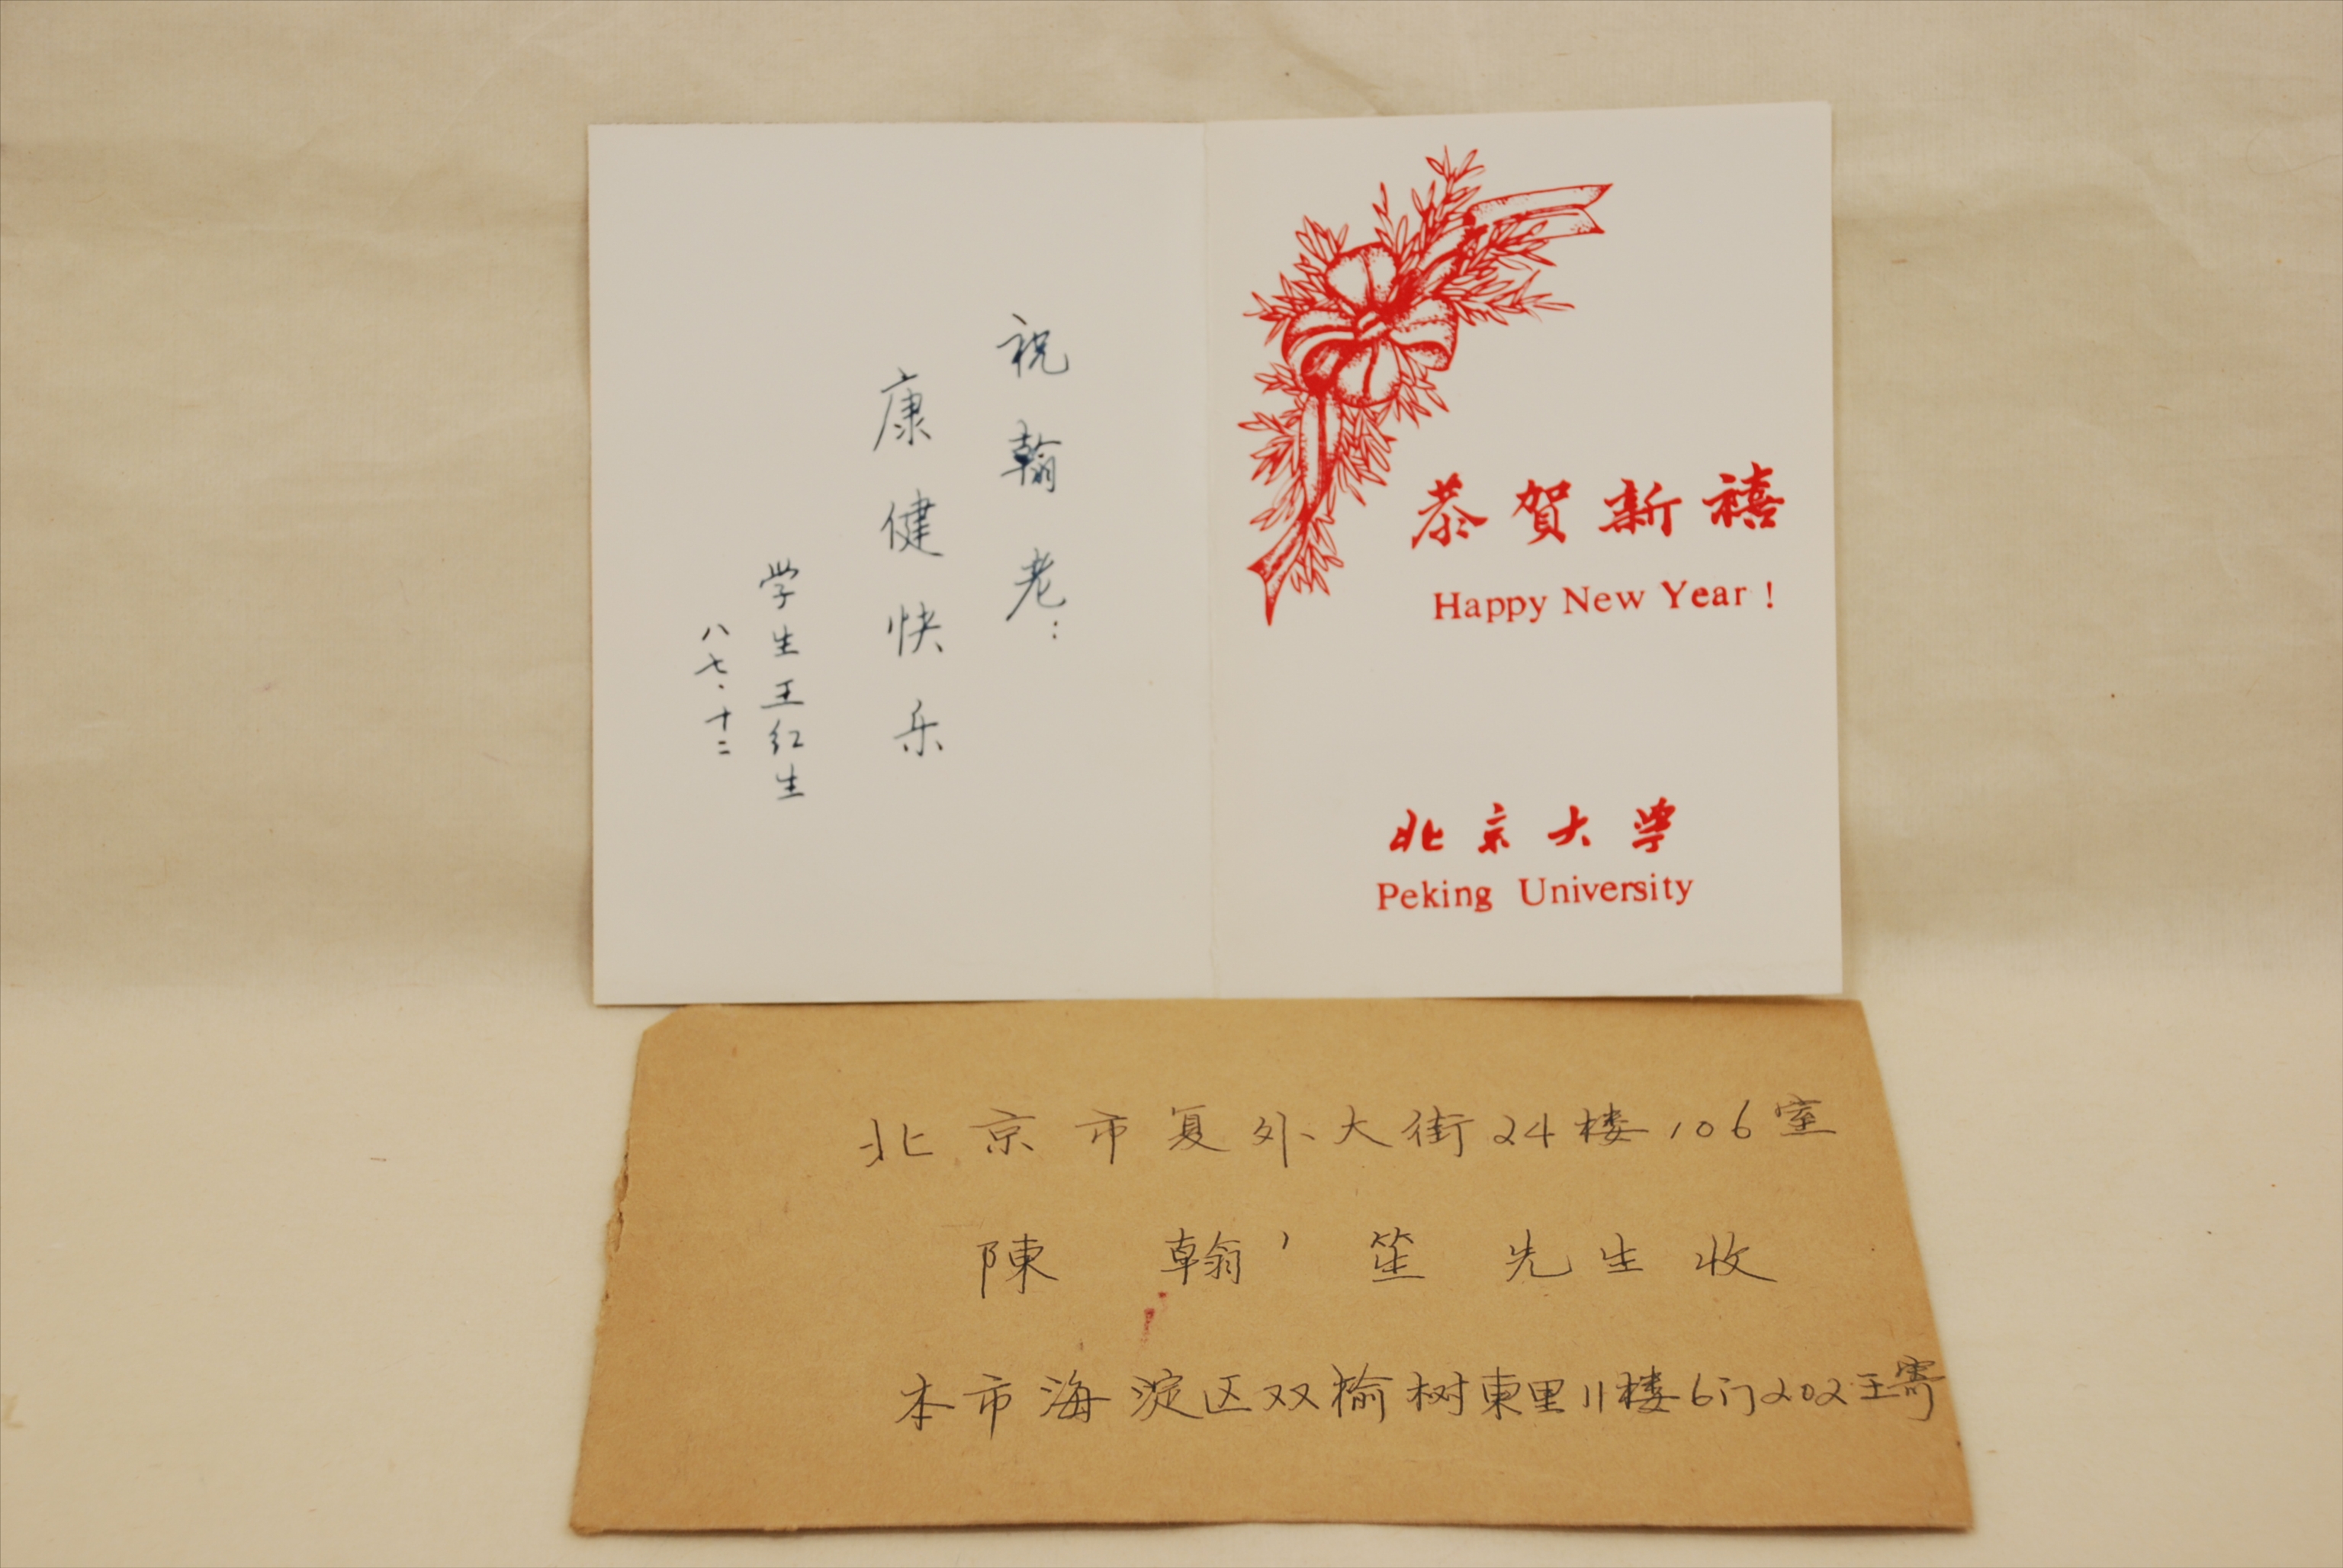 祝翰老:
康健快乐
学生王红生
八七.十二
恭贺新禧
Happy New Year !
北京大学
Peking University
北京市复外大街24楼106室
陳翰笙先生收
本市海淀区双榆树東里11楼6门202王寄